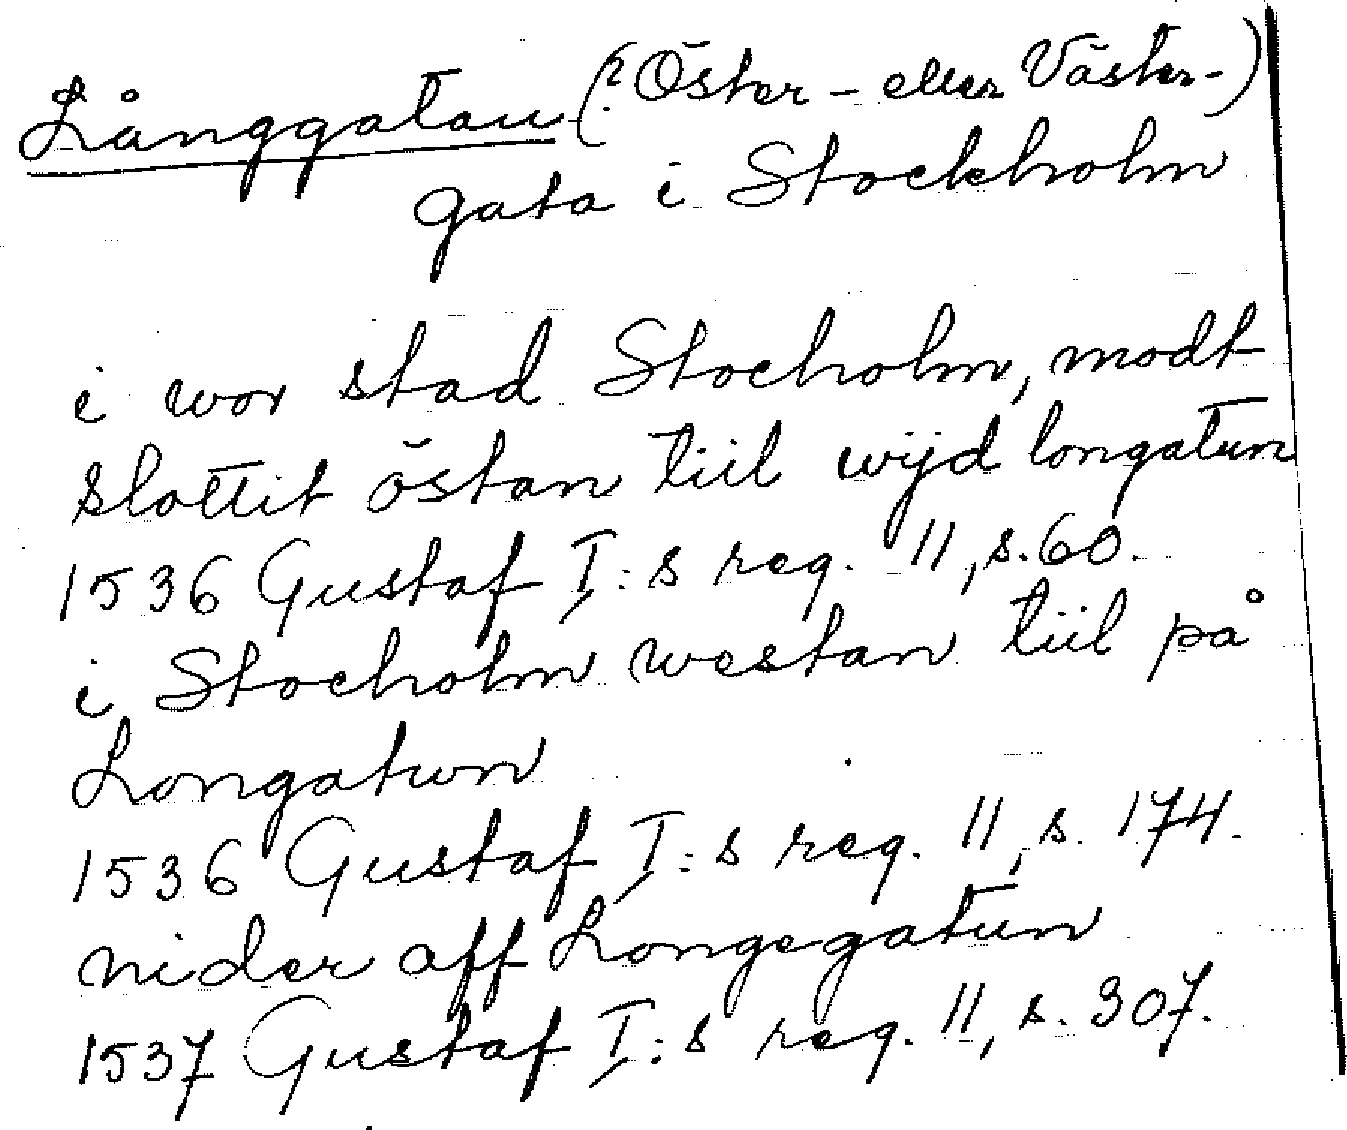 Långgatan (? Öster- eller Väster-)
gata i Stockholm
i wor stad Stocholm, modt
slottit östan tiil wijd longatun
1536 Gustaf I:s reg. 11, s. 60.
i Stocholm westan tiil på
Longatun
1536 Gustaf I:s reg. 11, s. 174.
nider aff Longegatun
1537 Gustaf I:s reg. 11, s. 307.